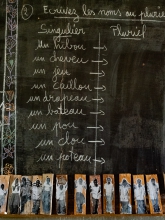 ② Ecrivez les noms au pluriel
Singulier Pluriel
un hibou →
un cheveu →
un jeu →
un caillou →
un drapeau →
un bateau →
un pou →
un clou →
un poteau →